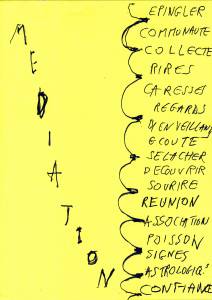 MEDIATION
EPINGLER
COMMUNAUTE
COLLECTE
RIRES
CARESSES
REGARDS
ECOUTE
SE LACHER
DECOUVRIR
SOURIRE
REUNION
ASSOCIATION
POISSON
SIGNES
CONFIANCE